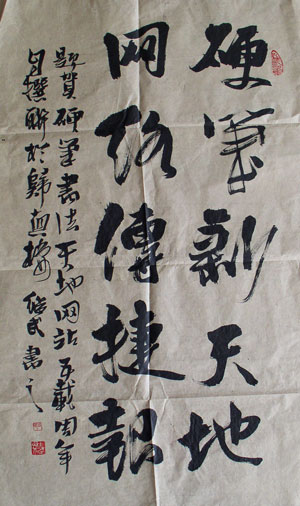 硬筆新天地
网络傳捷報
題賀硬筆書法天地网站五載周年
自撰聯於歸 書之